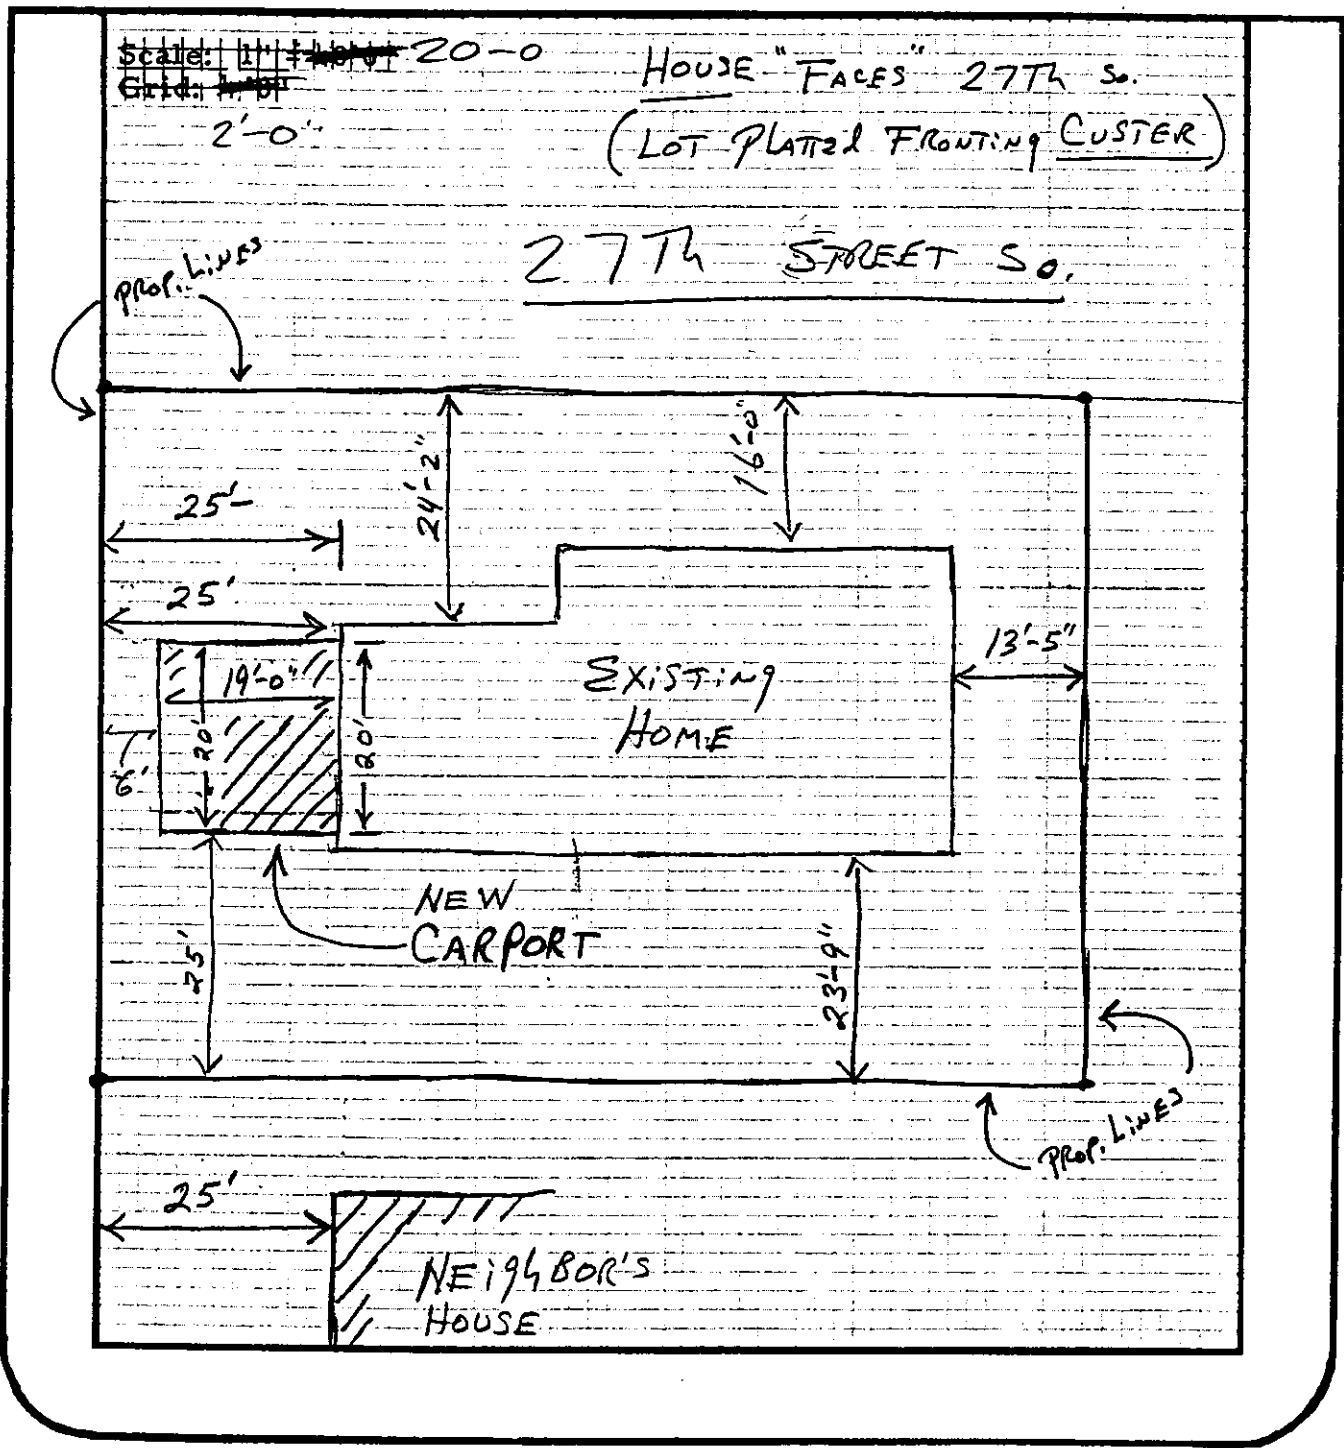 Scale: 1" = 20-0
Grid:
2'-0"
HOUSE "FACES" 27Th So.
(LOT PLATTEd FRONTING CUSTER)
27Th STREET So.
PROP. LINES
25'-
24'-2"
16'-0"
25'
19'-0"
20'
20'
6'
EXISTING
HOME
13'-5"
NEW
CARPORT
25'
23'-9"
PROP. LINES
25'
NEIGHBOR'S
HOUSE